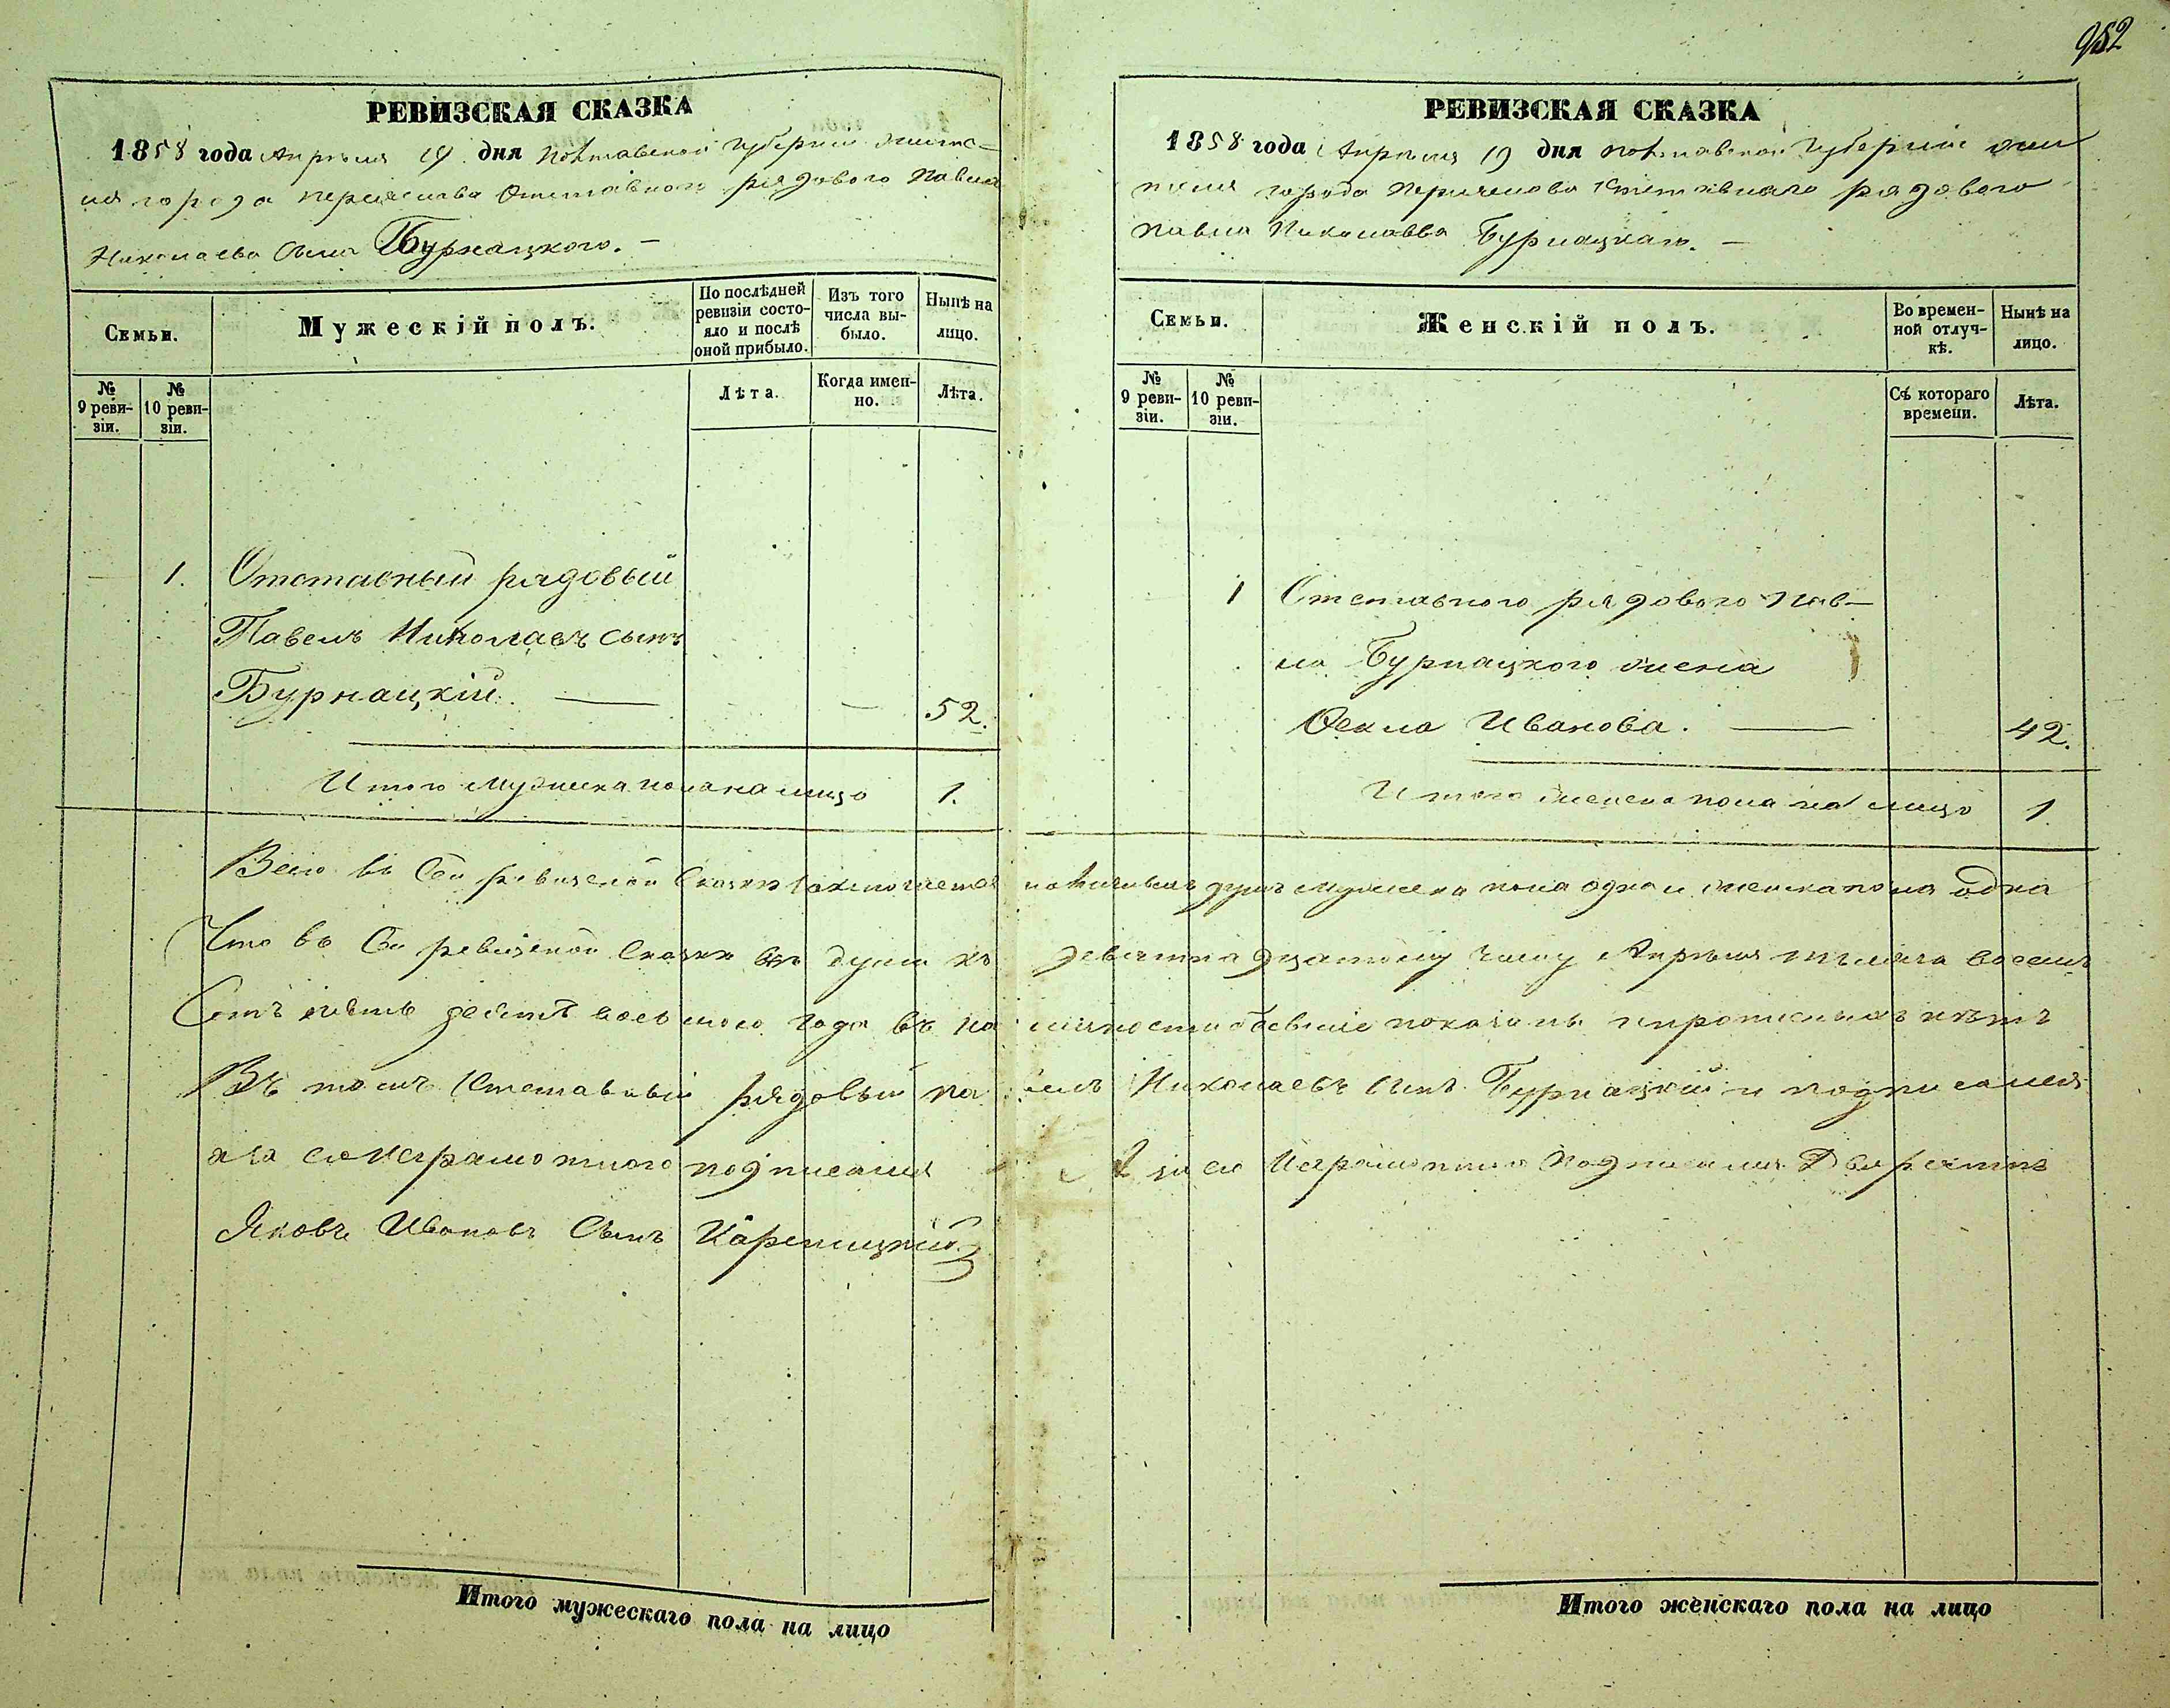 952
РЕВИЗСКАЯ СКАЗКА
1858 года Апреля 19 дня Полтавской Губернии жите-
ля города Переяслава Отставного рядового Павла
Николаева сына Бурнацкого. —
Семьи.
Мужескій полъ.
По послѣдней ревизіи состо-
яло и послѣ оной прибыло.
Изъ того числа вы-
было.
Нынѣ на лицо.
№ 9 реви-
зіи.
№ 10 реви-
зіи.
Лѣта.
Когда имен-
но.
Лѣта.
— 1. Отставный рядовый
Павелъ Николаевъ сынъ
Бурнацкій. — — 52.
Итого мужеска пола на лицо 1.
РЕВИЗСКАЯ СКАЗКА
1858 года Апреля 19 дня Полтавской Губерніи жи
теля города Переяслава Отставнаго рядового
Павла Николаева Бурнацкаго. —
Семьи.
Женскій полъ.
Во времен-
ной отлуч-
кѣ.
Нынѣ на лицо.
№ 9 реви-
зіи.
№ 10 реви-
зіи.
Съ котораго времени.
Лѣта.
1 Отставного рядового Пав—
ла Бурнацкого жена
Фекла Иванова. — 42.
Итого женска пола на лицо 1
Всего въ сей ревизской Сказки заключается наличныхъ душъ мужеска пола одна и женска пола одна
Что въ сей ревизской Сказки все души къ девятнадцатому числу Апреля тысяча восемъ
Сотъ пятьдесятъ восьмого года въ наличности бывшіе показаны и прописныхъ нѣтъ
Въ томъ Отставный рядовый Павелъ Николаевъ сынъ Бурнацкій и подписался
а за его неграмотного подписался
а за его неграмотного подписался Дворянинъ
Яковъ Ивановъ Сынъ
Итого мужескаго пола на лицо
Итого женскаго пола на лицо